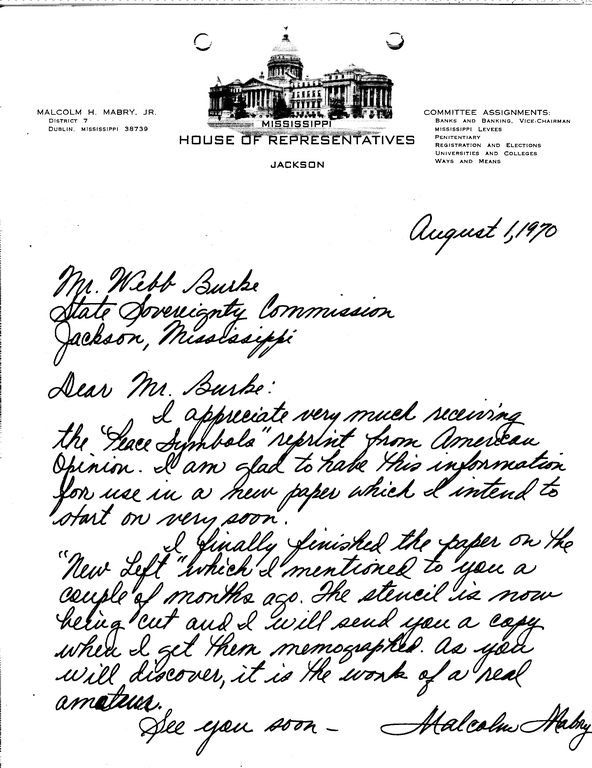 MALCOLM H. MABRY, JR.
DISTRICT 7
DUBLIN, MISSISSIPPI 38739
MISSISSIPPI
HOUSE OF REPRESENTATIVES
JACKSON
COMMITTEE ASSIGNMENTS:
BANKS AND BANKING, VICE-CHAIRMAN
MISSISSIPPI LEVEES
PENITENTIARY
REGISTRATION AND ELECTIONS
UNIVERSITIES AND COLLEGES
WAYS AND MEANS
August 1, 1970
Mr. Webb Burke
State Sovereignty Commission
Jackson, Mississippi
Dear Mr. Burke:
I appreciate very much receiving
the "Peace Symbols" reprint from American
Opinion. I am glad to have this information
for use in a new paper which I intend to
start on very soon.
I finally finished the paper on the
"New Left" which I mentioned to you a
couple of months ago. The stencil is now
being cut and I will send you a copy
when I get them memographed. As you
will discover, it is the work of a real
amateur.
See you soon – Malcolm Mabry